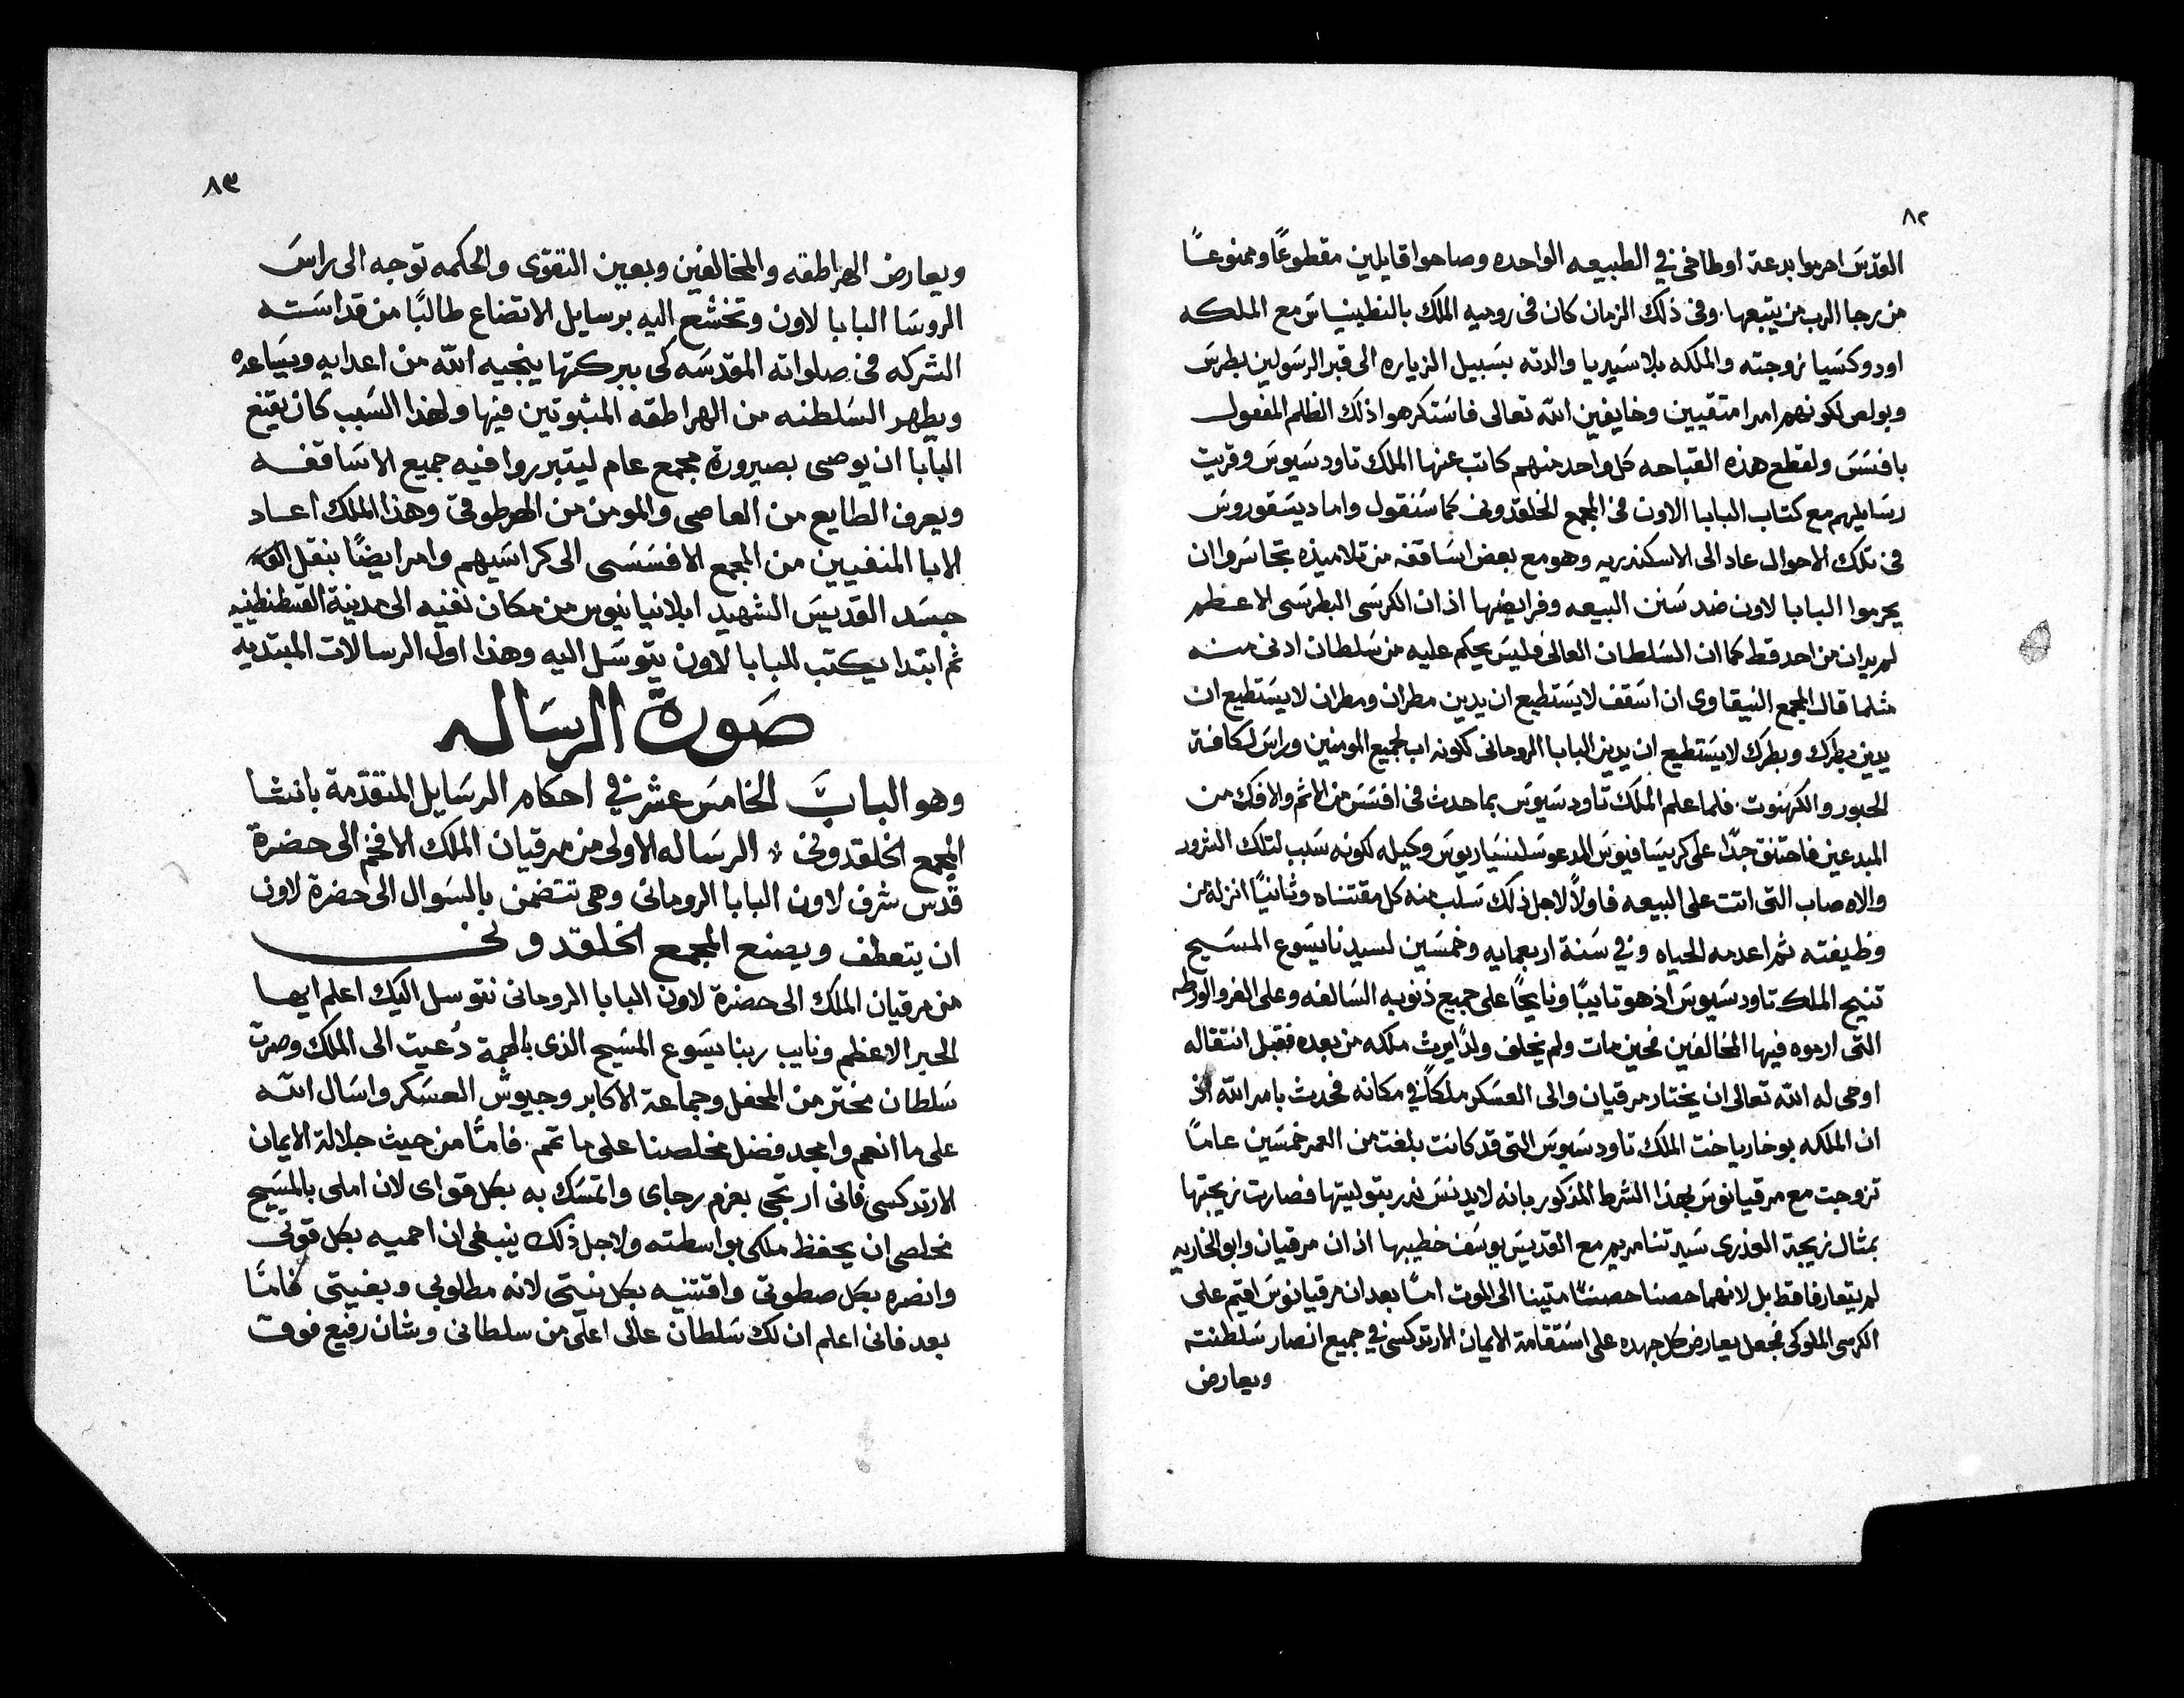 ٨٢
القدس احرموا بدعة اوطاخي في الطبيعه الواحده وصاحوا قايلين مقطوعًا وممنوعًا
من رجا الرب من يتبعها. وفى ذلك الزمان كان فى روميه الملك بالنطينياس مع الملكه
اودوكسيا زوجته والملكه بلاسيريا والدته بسبيل الزياره الى قبر الرسولين بطرس
وبولص لكونهم امرا متقيين وخايفين الله تعالى فاستكرهوا ذلك الظلم المفعول
بافسس ولقطع هذه القباحه كل واحد منهم كاتب عنها الملك تاودسيوس وقريت
رسايلهم مع كتاب البابا الاون فى المجمع الخلقدونى كما سنقول واما ديسقوروس
فى تلك الاحوال عاد الى الاسكندريه وهو مع بعض اساقفه من تلاميذه تجاسروا ان
يحرموا البابا لاون ضد سنن البيعه وفرايضها اذ ان الكرسى البطرسى الاعظم
لم يدان من احد قط كما ان السلطان العالى فليس يحكم عليه من سلطان ادنى منه
مثلما قال المجمع النيقاوى ان اسقف لا يستطيع ان يدين مطران ومطران لا يستطيع ان
يدين بطرك وبطرك لا يستطيع ان يدين البابا الرومانى لكونه اب لجميع المومنين وراس لكافة
الحبور والكهنوت. فلما علم الملك تاودسيوس بما حدث فى افسس من الاثم والافك من
المبدعين فاحتنق جدًا على كريسافيوس المدعو سلنسياريوس وكيله لكونه سبب لتلك الشرور
والاوصاب التى اتت على البيعه فاولًا لاجل ذلك سلب منه كل مقتناه وثانيًا انزله من
وظيفته ثم اعدمه الحياه وفي سنة اربعمايه وخمسين لسيدنا يسوع المسيح
تنيح الملك تاودسيوس اذ هو تايبًا ونايحًا على جميع ذنوبه السالفه وعلى الغر والورطه
التى ارموه فيها المخالفين فحين مات ولم يخلف ولدًا يرث ملكه من بعده فقبل انتقاله
اوحى له الله تعالى ان يختار مرقيان والى العسكر ملكًا في مكانه فحدث بامر الله اذ
ان الملكه بوخاريا خت الملك تاودسيوس التى قد كانت بلغت من العمر خمسين عامًا
تزوجت مع مرقيانوس بهذا الشرط المذكور بانه لا يدنس نذر بتوليتها فصارت زيجتها
بمثال زيجة العذرى سيدتنا مريم مع القديس يوسف خطيبها اذ ان مرقيان وابو الخاريه
لم يتعارفا قط بل لانهما حصنا حصنًا متينا الى الموت امًا بعد ان مرقيانوس اقيم على
الكرسى الملوكى فجعل يعارض كل جهده على استقامة الايمان الارتدكسى في جميع انصار سلطنته
ويعارض
٨٣
ويعارض الهراطقه والمخالفين وبعين التقوى والحكمه توجه الى راس
الروسا البابا لاون وتخشع اليه برسايل الاتضاع طالبًا من قداسته
الشركه فى صلواته المقدسه كى ببركتها ينجيه الله من اعدايه ويساعده
ويطهر السلطنه من الهراطقه المثبوتين فيها ولهذا السبب كان يقنع
البابا ان يوصى بصيرورة مجمع عام ليتبرروا فيه جميع الاساقفه
ويعرف الطايع من العاصى والمومن من الهرطوقى وهذا الملك اعاد
الابا المنفيين من المجمع الافسسى الى كراسيهم وامر ايضًا بنقل
جسد القديس الشهيد ابلانيانيوس من مكان نفيه الى مدينة القسطنطينيه
ثم ابتدا يكتب للبابا لاون يتوسل اليه وهذا اول الرسالات المبتديه
صورة الرساله
وهو الباب الخامس عشر في احكام الرسايل المتقدمة بانشا
المجمع الخلقدونى ⁘ الرساله الاولى من مرقيان الملك الافخم الى حضرة
قدس شرف لاون البابا الرومانى وهى تتضمن بالسوال الى حضرة لاون
ان يتعطف ويصنع المجمع الخلقدونى
من مرقيان الملك الى حضرة لاون البابا الرومانى نتوسل اليك اعلم ايها
الحبر الاعظم ونايب ربنا يسوع المسيح الذى بالهمة دُعيت الى الملك وصرت
سلطان مختر من المحفل وجماعة الاكابر وجيوش العسكر واسال الله
على ما انعم وامجد فضل مخلصنا على ما تمم. فامًا من حيث جلالة الايمان
الارتدكسى فانى ارتجى بعزم رجاى واتمسك به بكل قواى لان املى بالمسيح
مخلصى ان يحفظ ملكى بواسطته ولاجل ذلك ينبغى ان احميه بكل قوتى
وانصره بكل صطوتى واقتنيه بكل نيتى لانه مطلوبى وبغيتى فامًا
بعد فانى اعلم ان لك سلطان عالى اعلى من سلطانى وشان رفيع فوق